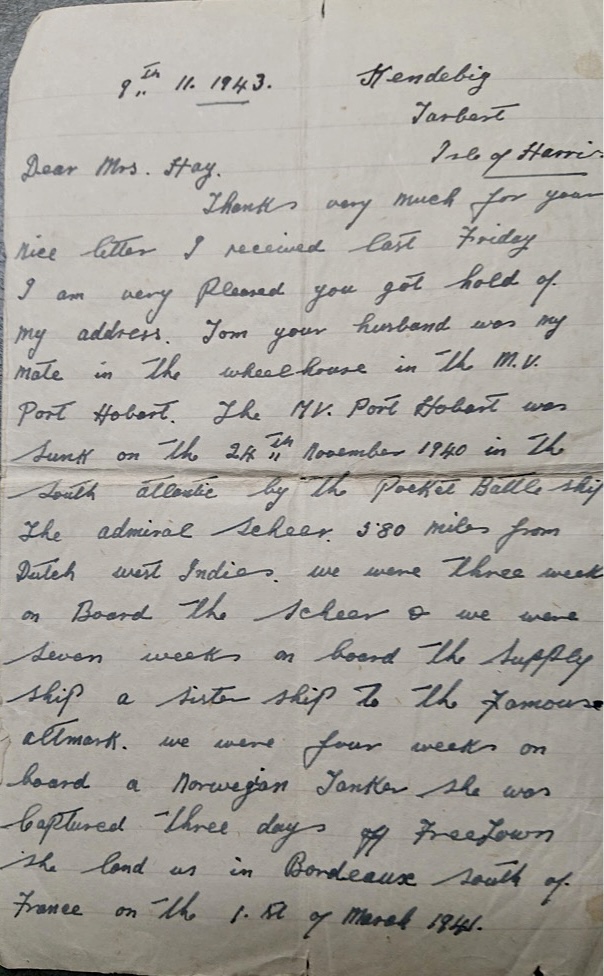 9th 11. 1943. Kendebig
Tarbert
Isle of Harris
Dear Mrs. Hay.
Thanks very much for your
nice letter I received last Friday
I am very Pleased you got hold of
my address. Tom your husband was my
mate in the wheelhouse in the M.V.
Port Hobart. The MV. Port Hobart was
sunk on the 24th November 1940 in the
South atlantic by the Pocket Battle ship
The admiral Scheer. 580 miles from
Dutch west Indies. we were three week
on Board the Scheer & we were
seven weeks on board the supply
ship a sister ship to the Famouse
altmark. we were four weeks on
board a Norwegian Tanker she was
Captured three days off FreeTown
she land us in Bordeaux south of
France on the 1.st of March 1941.